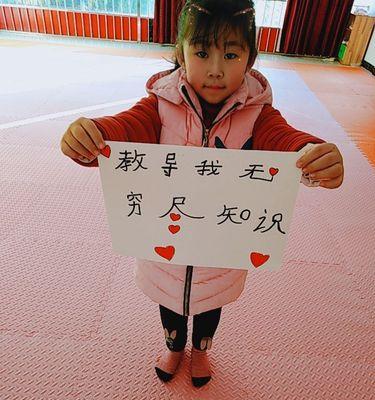 教导我无
穷尺知识